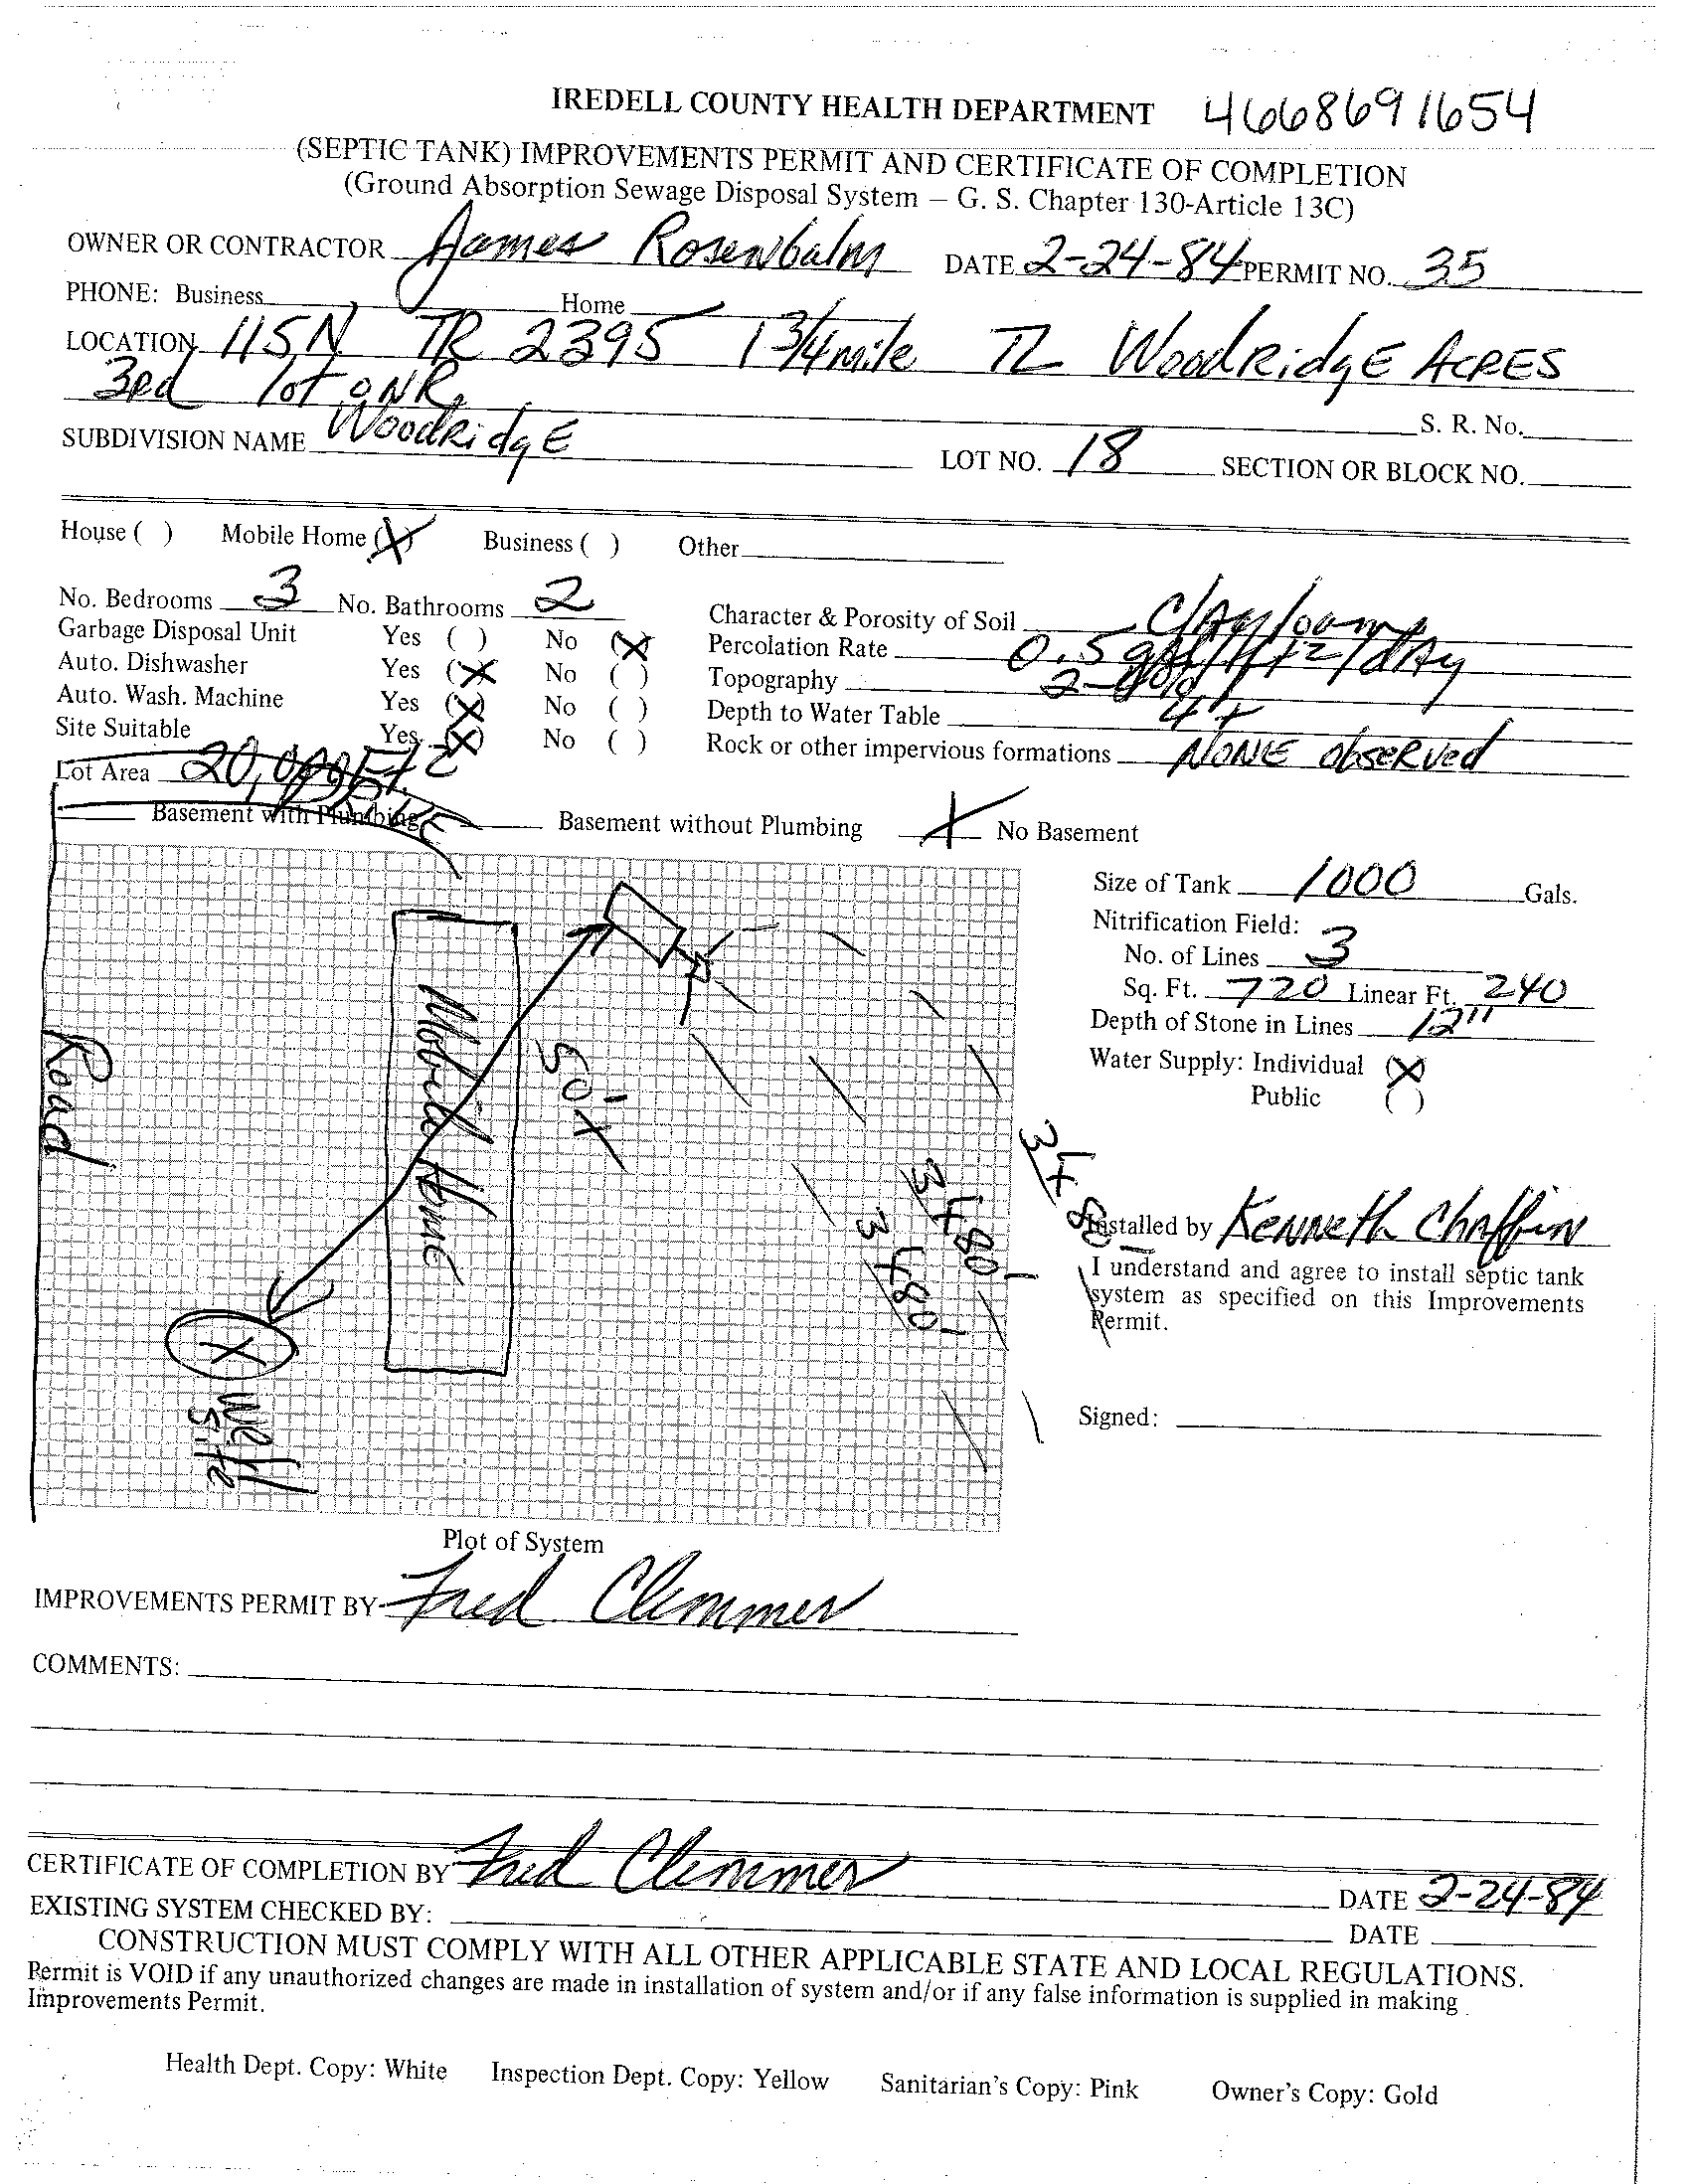 IREDELL COUNTY HEALTH DEPARTMENT 4668691654
(SEPTIC TANK) IMPROVEMENTS PERMIT AND CERTIFICATE OF COMPLETION
(Ground Absorption Sewage Disposal System – G. S. Chapter 130-Article 13C)
OWNER OR CONTRACTOR James Rosenbalm DATE 2-24-84 PERMIT NO. 35
PHONE: Business Home
LOCATION 115N TR 2395 1 3/4 mile TL WoodRidgE AcRES
3Rd lot ON R. S. R. No.
SUBDIVISION NAME WoodRidgE LOT NO. 18 SECTION OR BLOCK NO.
House ( ) Mobile Home (X) Business ( ) Other
No. Bedrooms 3 No. Bathrooms 2 Character & Porosity of Soil ClAy loam
Garbage Disposal Unit Yes ( ) No (X) Percolation Rate 0.5 gal/ft2/dAy
Auto. Dishwasher Yes (X) No ( ) Topography
Auto. Wash. Machine Yes (X) No ( ) Depth to Water Table 4'+
Site Suitable Yes (X) No ( ) Rock or other impervious formations NONE obseRved
Lot Area 20,000 Ft2
Basement with Plumbing Basement without Plumbing X No Basement
Size of Tank 1000 Gals.
Nitrification Field:
No. of Lines 3
Sq. Ft. 720 Linear Ft. 240
Depth of Stone in Lines 12"
Water Supply: Individual (X)
Public ( )
Road
Mobile Home
50'+
3'x80'
3'x80'
3'x80'
X
Well Site
Installed by KENNeth ChAffiN
I understand and agree to install septic tank
system as specified on this Improvements
Permit.
Signed:
Plot of System
IMPROVEMENTS PERMIT BY Fred Clemmer
COMMENTS:
CERTIFICATE OF COMPLETION BY Fred Clemmer DATE 2-24-84
EXISTING SYSTEM CHECKED BY: DATE
CONSTRUCTION MUST COMPLY WITH ALL OTHER APPLICABLE STATE AND LOCAL REGULATIONS.
Permit is VOID if any unauthorized changes are made in installation of system and/or if any false information is supplied in making
Improvements Permit.
Health Dept. Copy: White Inspection Dept. Copy: Yellow Sanitarian's Copy: Pink Owner's Copy: Gold